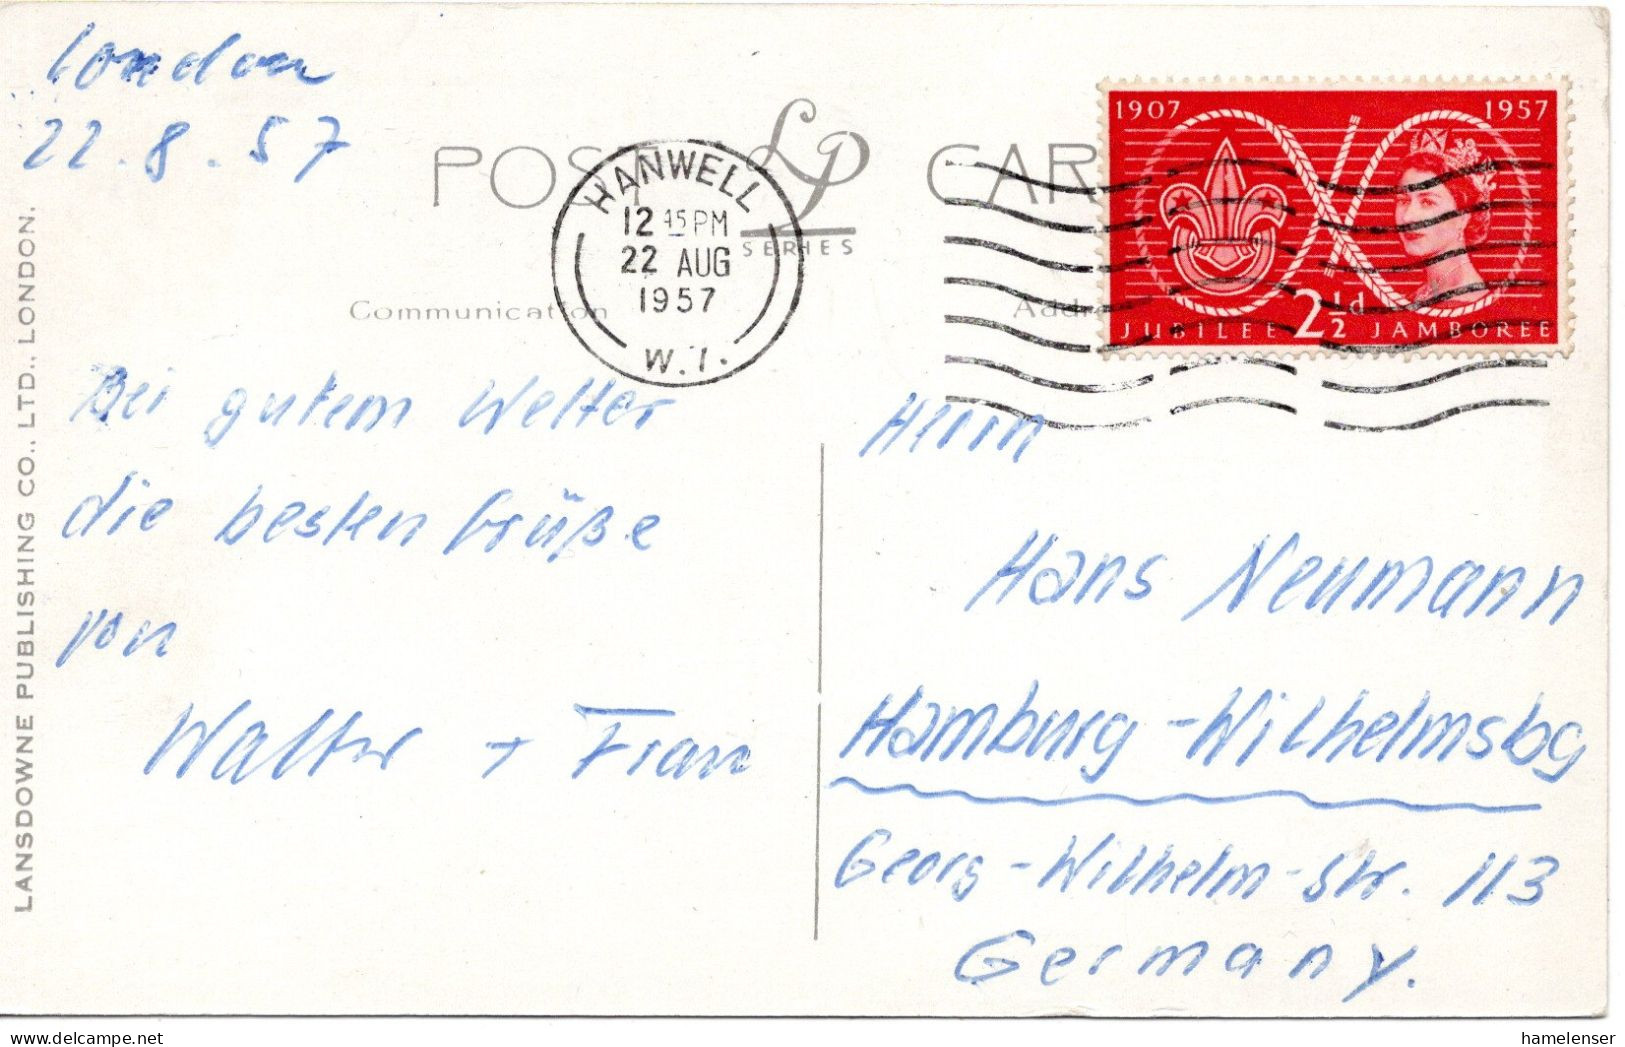 London
22.8.57
POST CARD
LP
SERIES
HANWELL
12 45 PM
22 AUG
1957
W.7.
1907 1957
JUBILEE 2½d JAMBOREE
Communication
Bei gutem Wetter
die besten Grüße
von
Walter + Frau
Herrn
Hans Neumann
Hamburg-Wilhelmsbg
Georg-Wilhelm-Str. 113
Germany.
LANSDOWNE PUBLISHING CO., LTD., LONDON.
delcampe.net
hamelenser